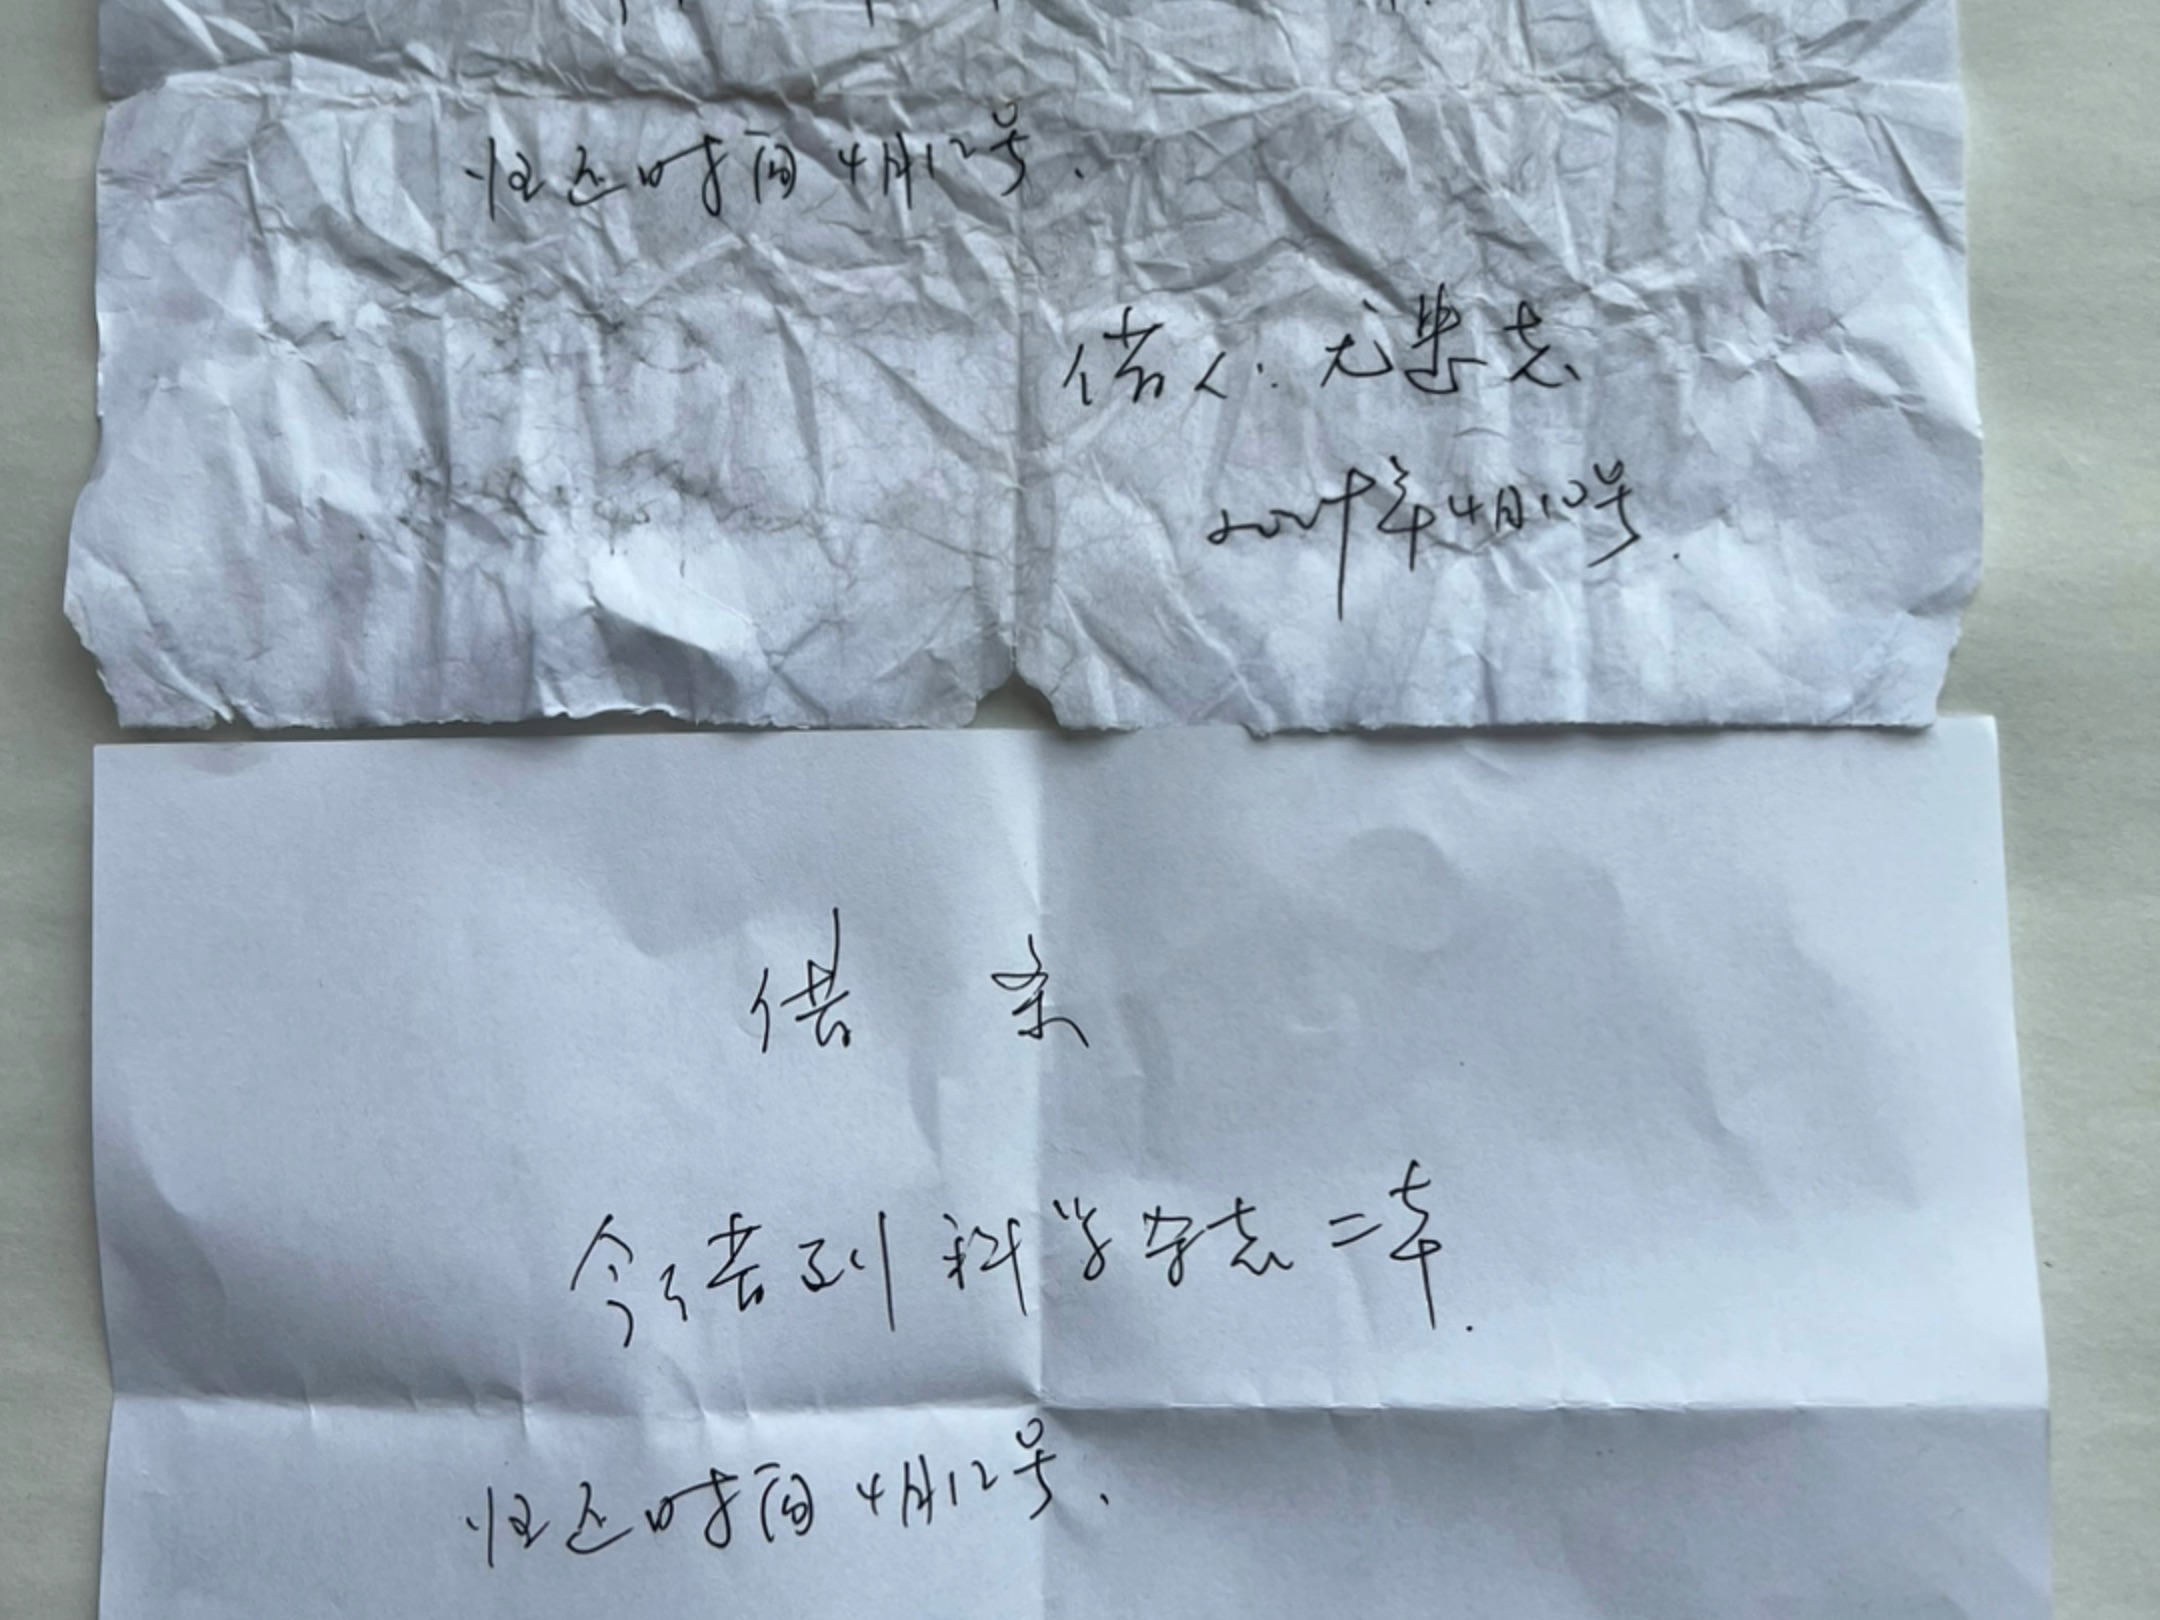 归还时间4月12号.
借人:尤忠志
2024年4月10号.
借 条
今借到科学杂志二本.
归还时间4月12号.